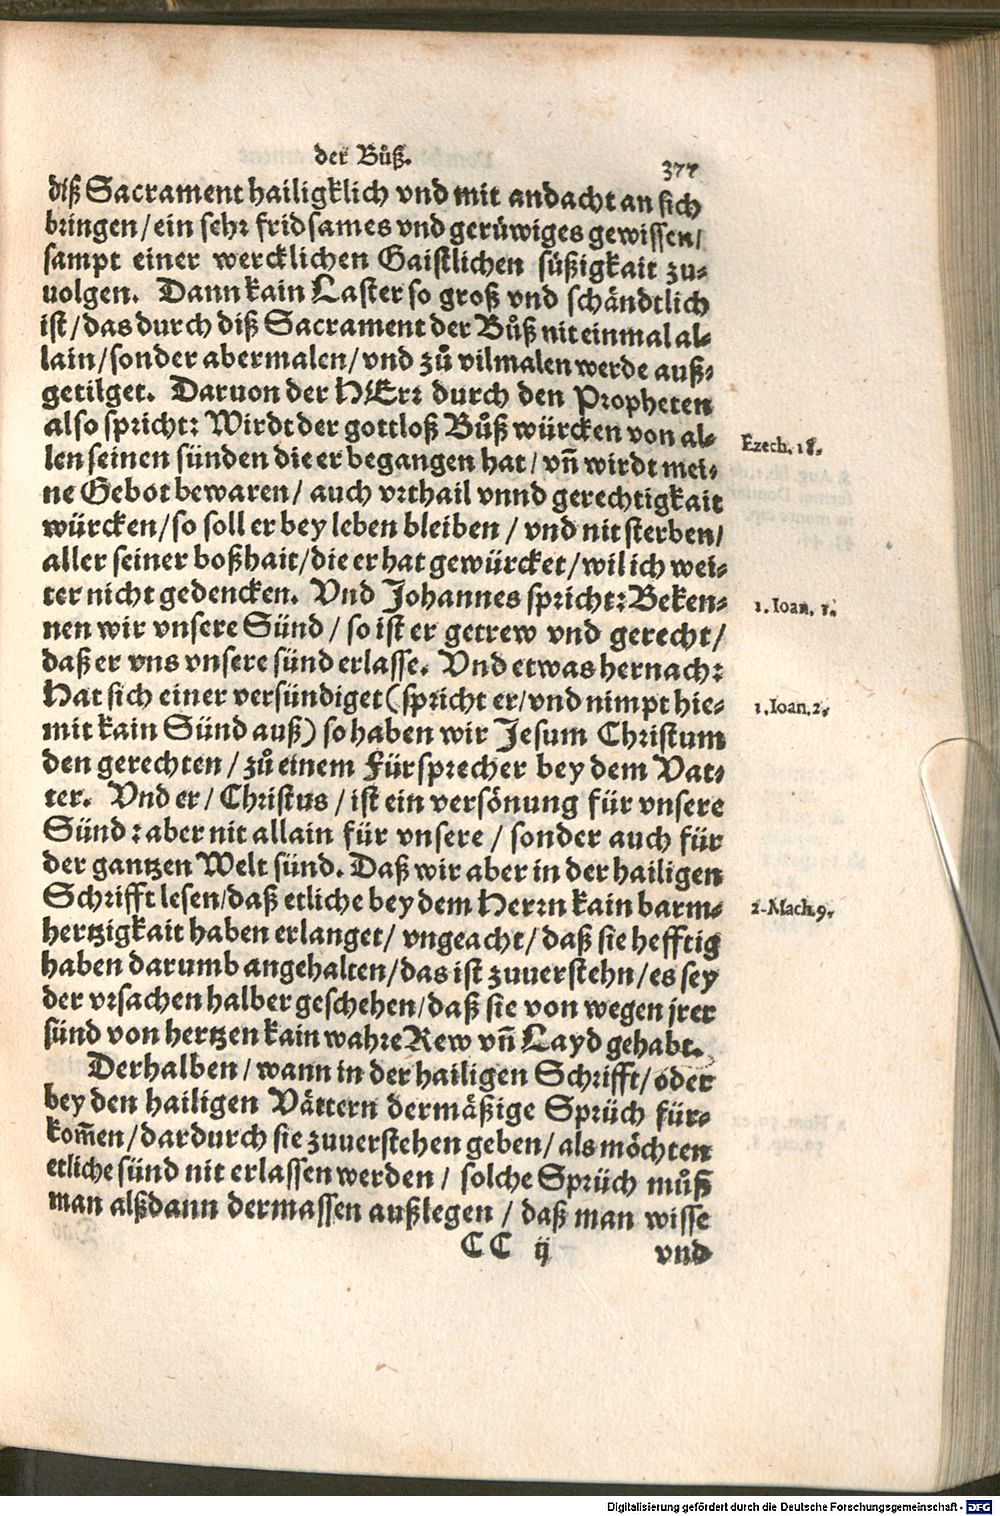 der Bůß.
377
diß Sacrament hailigklich vnd mit andacht an sich
bringen / ein sehr fridsames vnd gerüwiges gewissen /
sampt einer wercklichen Gaistlichen süßigkait zu-
uolgen. Dann kain Laster so groß vnd schändtlich
ist / das durch diß Sacrament der Bůß nit einmal al-
lain / sonder abermalen / vnd zů vilmalen werde auß-
getilget. Daruon der HErr durch den Propheten
also spricht: Wirdt der gottloß Bůß würcken von al-
len seinen sünden die er begangen hat / vñ wirdt mei-
ne Gebot bewaren / auch vrthail vnnd gerechtigkait
würcken / so soll er bey leben bleiben / vnd nit sterben /
aller seiner boßhait / die er hat gewürcket / wil ich wei-
ter nicht gedencken. Vnd Johannes spricht: Beken-
nen wir vnsere Sünd / so ist er getrew vnd gerecht /
daß er vns vnsere sünd erlasse. Vnd etwas hernach:
Hat sich einer versündiget (spricht er / vnd nimpt hie-
mit kain Sünd auß) so haben wir Jesum Christum
den gerechten / zů einem Fürsprecher bey dem Vat-
ter. Vnd er / Christus / ist ein versönung für vnsere
Sünd : aber nit allain für vnsere / sonder auch für
der gantzen Welt sünd. Daß wir aber in der hailigen
Schrifft lesen / daß etliche bey dem Herrn kain barm-
hertzigkait haben erlanget / vngeacht / daß sie hefftig
haben darumb angehalten / das ist zuuerstehn / es sey
der vrsachen halber geschehen / daß sie von wegen jrer
sünd von hertzen kain wahre Rew vñ Layd gehabt.
Derhalben / wann in der hailigen Schrifft / oder
bey den hailigen Vättern dermäßige Sprüch für-
kom̃en / dardurch sie zuuerstehen geben / als möchten
etliche sünd nit erlassen werden / solche Sprüch můß
man alßdann dermassen außlegen / daß man wisse
CC ij
vnd
Ezech. 18.
1. Ioan. 1.
1. Ioan. 2.
2. Mach. 9.
Digitalisierung gefördert durch die Deutsche Forschungsgemeinschaft - DFG